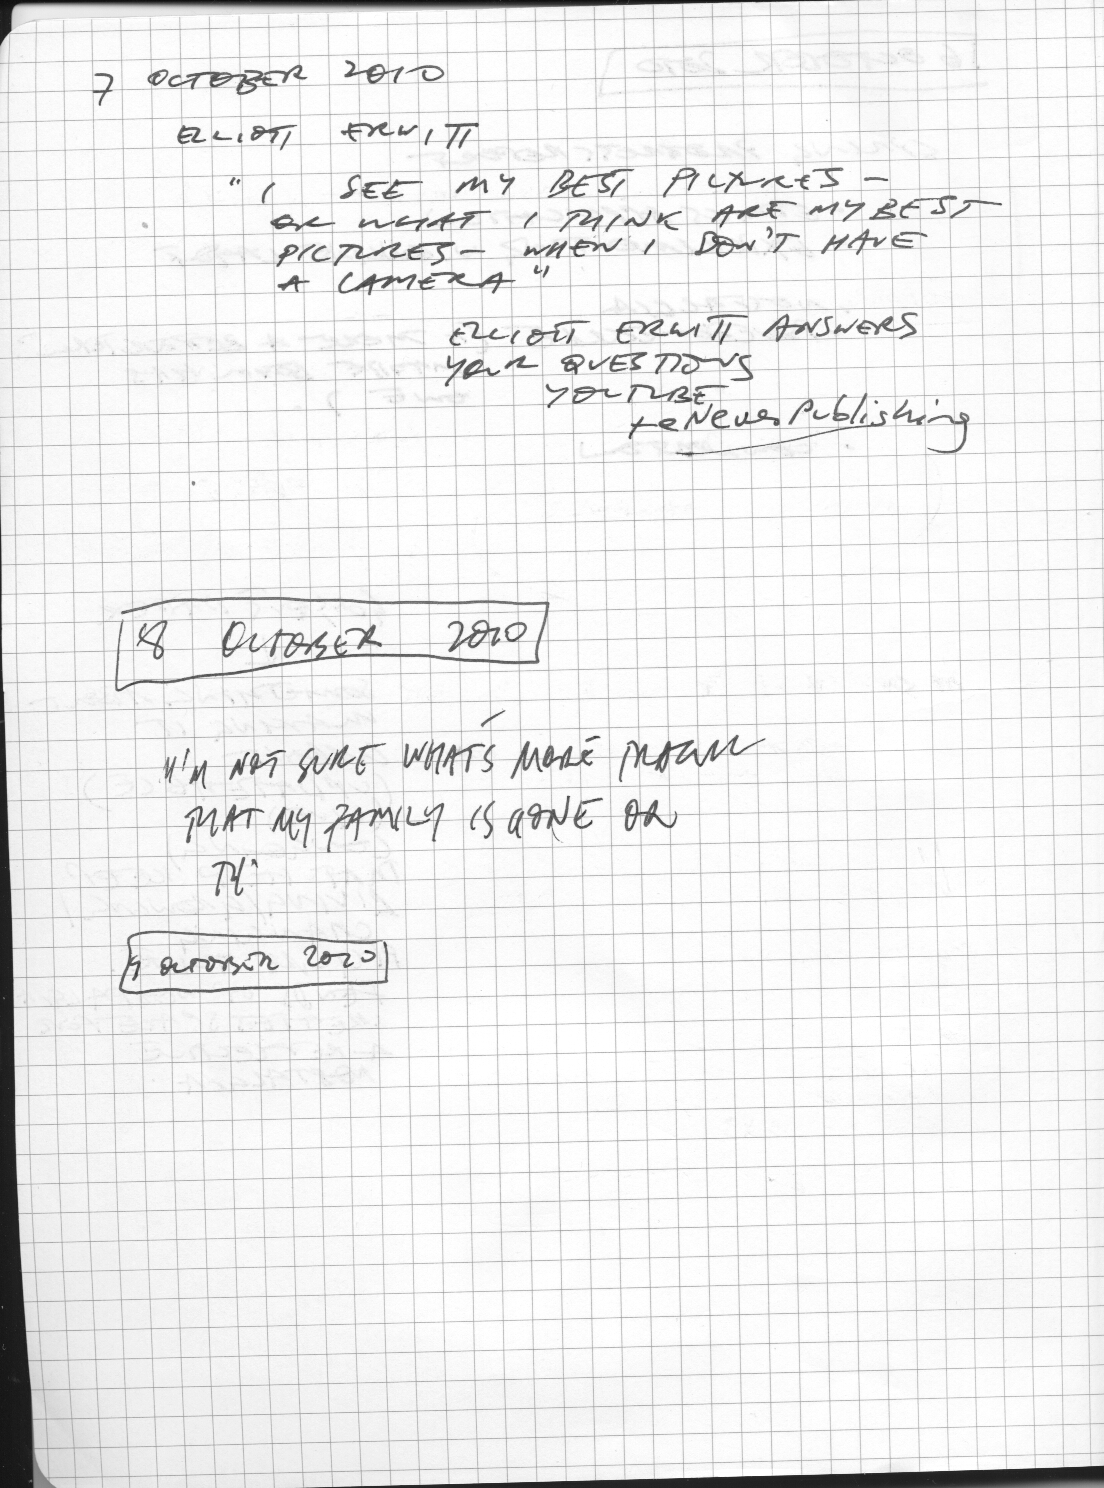 7 OCTOBER 2010
ELLIOTT ERWITT
"I SEE MY BEST PICTURES –
OR WHAT I THINK ARE MY BEST
PICTURES – WHEN I DON'T HAVE
A CAMERA"
ELLIOTT ERWITT ANSWERS
YOUR QUESTIONS
YOUTUBE
teNeues Publishing
8 OCTOBER 2010
I'M NOT SURE WHAT'S MORE TRAGIC
THAT MY FAMILY IS GONE OR
9 OCTOBER 2010